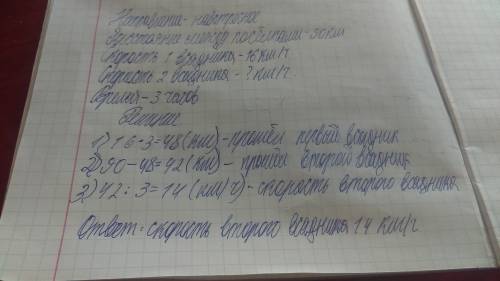 Направление - навстречу
Расстояние между посёлками - 90 км
Скорость 1 всадника - 16 км/ч
Скорость 2 всадника - ? км/ч
Время - 3 часов
Решение
1) 16·3=48 (км) - прошёл первый всадник
2) 90-48=42 (км) - прошёл второй всадник
3) 42:3=14 (км/ч) - скорость второго всадника
Ответ: скорость второго всадника 14 км/ч